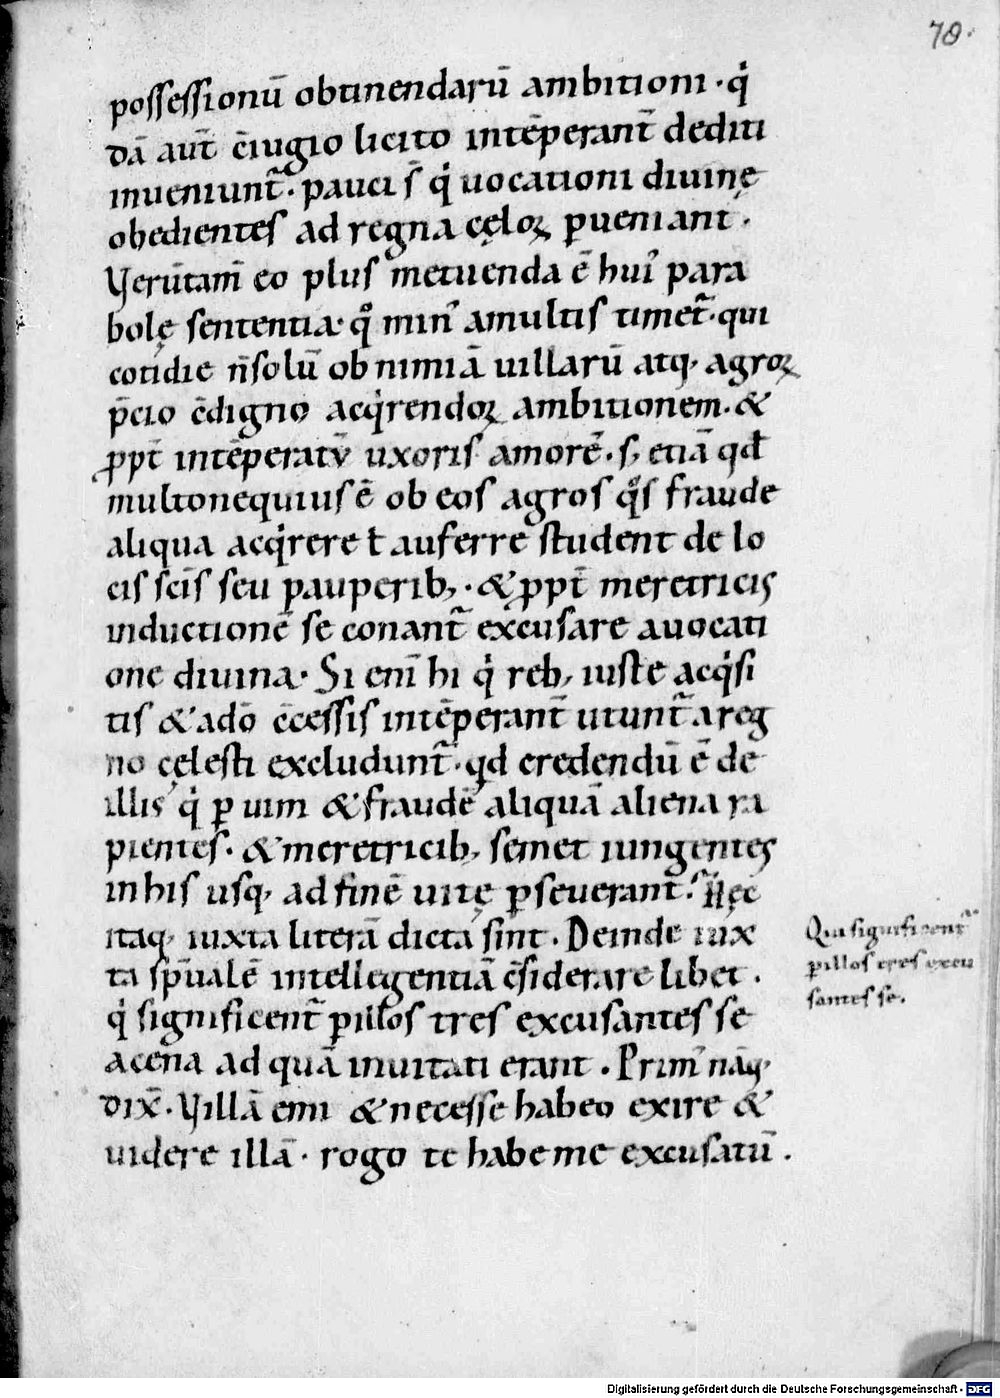 78.
possessionū obtinendarū ambitioni · q̇
dā aut̄ c̄iugio licito intēperant̄ dediti
inueniunt̄ · pauci s̄ q̇ uocationi diuinę
obedientes ad regna cęloꝝ ꝑueniant ·
Verūtam̄ eo plus metuenda ē hui᾽ para
bolę sententia · qͦ min᾽ amultis timet̄ · qui
cotidie n̄solū ob nimiā uillarū atq· agroꝝ
p̄cio c̄digno acq̇rendoꝝ ambitionem · &
ꝓpt̄ intēperatū uxoris amorē · s; etiā qd̄
multonequius ē ob eos agros qͦs fraude
aliqua acq̇rere ł auferre student de lo
cis sc̄is seu pauperib; · & ꝓpt̄ meretricis
inductionē se conant̄ excusare auocati
one diuina · Si eni᾽ hi q̇ reb; iuste acq̇si
tis & adō c̄cessis intēperant̄ utunt̄ a reg
no cęlesti excludunt̄ · qd credendū ē de
illis q̇ ꝑ uim & fraudē aliquā aliena ra
pientes · & meretricib; semet iungentes
in his usq· ad finē uitę ꝑseuerant · Hęc
itaq· iuxta literā dicta sint · Deinde iux
ta sp̄ualē intellegentiā c̄siderare libet ·
q̇ significent̄ ꝑ illos tres excusantes se
a cena ad quā inuitati erant · Prim᾽ nāq·
dix̄ · Villā emi & necesse habeo exire &
uidere illā · rogo te habe me excusatū ·
Qui significent̄
ꝑ illos tres excu
santes se.
Digitalisierung gefördert durch die Deutsche Forschungsgemeinschaft - DFG